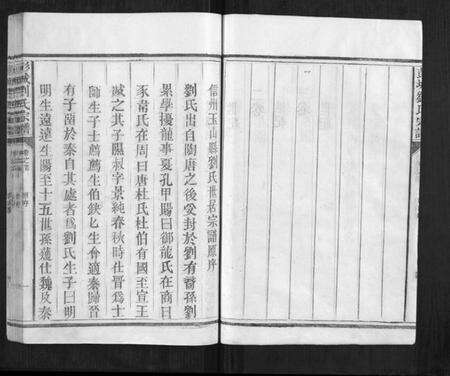 信州玉山縣劉氏世居宗譜原序
劉氏出自陶唐之後受封於劉有裔孫劉
累學擾龍事夏孔甲賜曰御龍氏在商曰
豕韋氏在周曰唐杜氏杜伯有國至宣王
滅之其子隰叔字景純春秋時仕晉爲士
師生子士蒍蒍生伯鈌匕生會適秦歸晉
有子留於秦自其處者爲劉氏生子曰明
明生遠遠生陽至十五世孫蓮仕魏及秦
劉氏宗譜